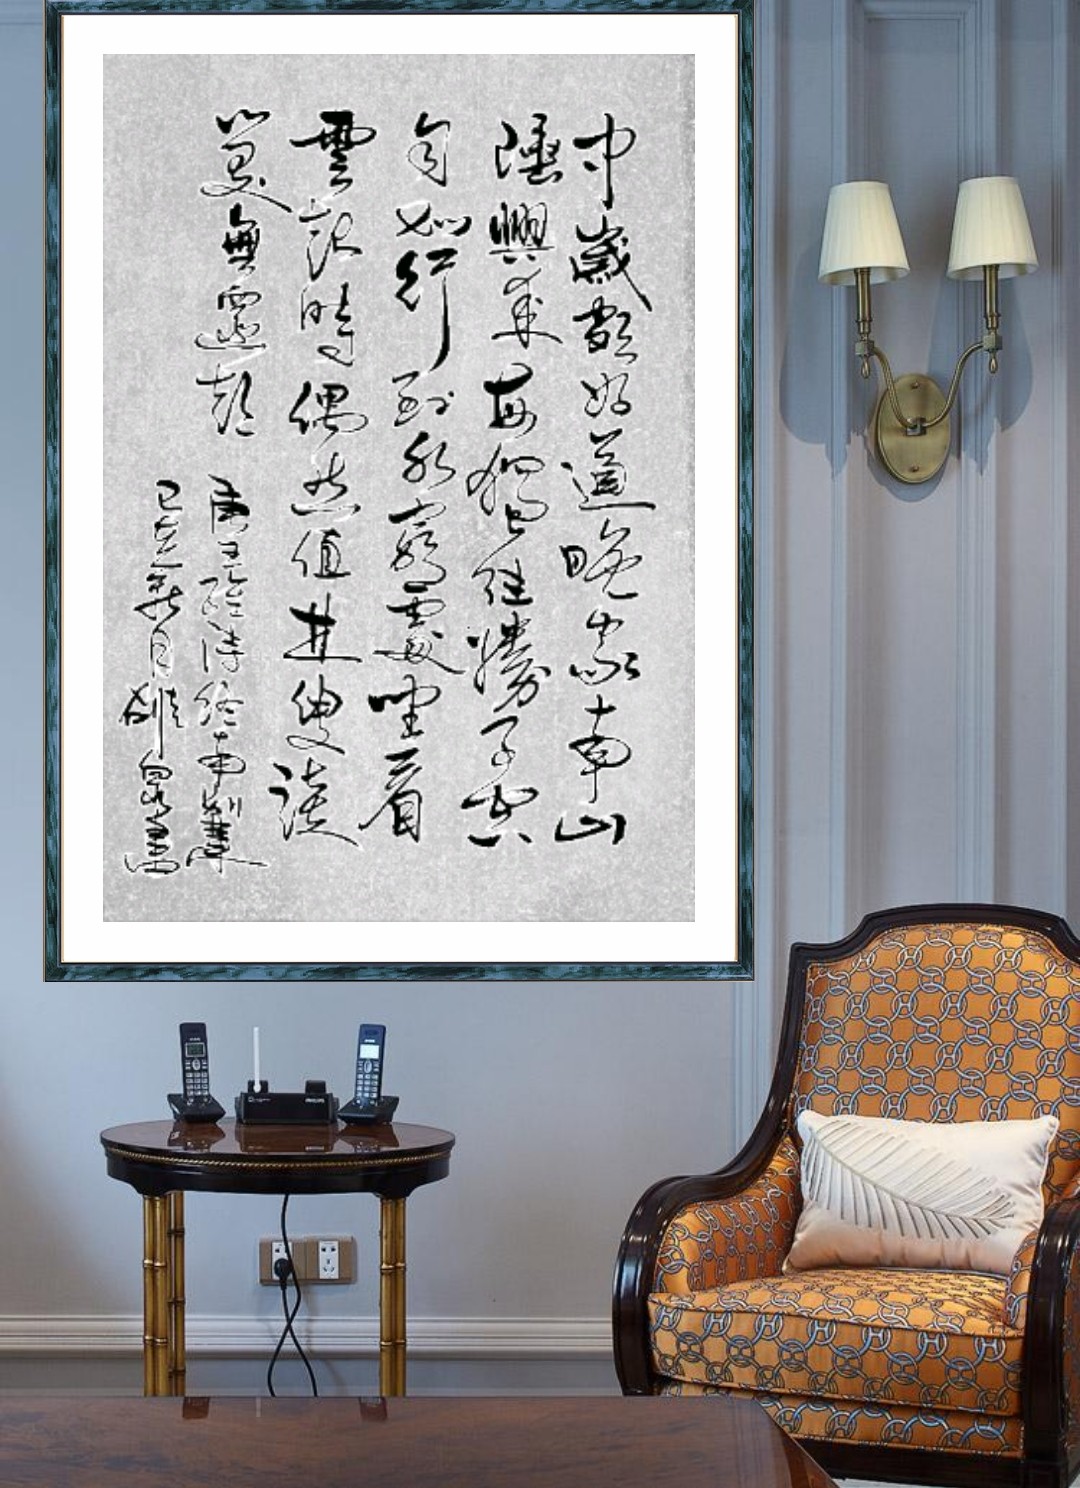 中歲頗好道晚家南山
陲興來每獨往勝事空
自知行到水窮處坐看
雲起時偶然值林叟談
笑無還期
唐王維詩終南別業
己亥秋月雄泉書
PHILIPS